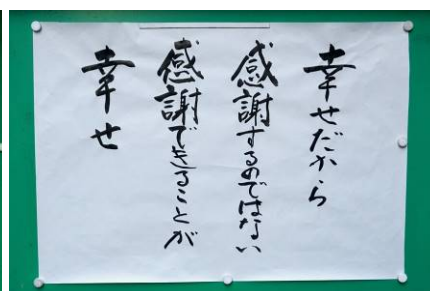 幸せだから
感謝するのではない
感謝できることが
幸せ